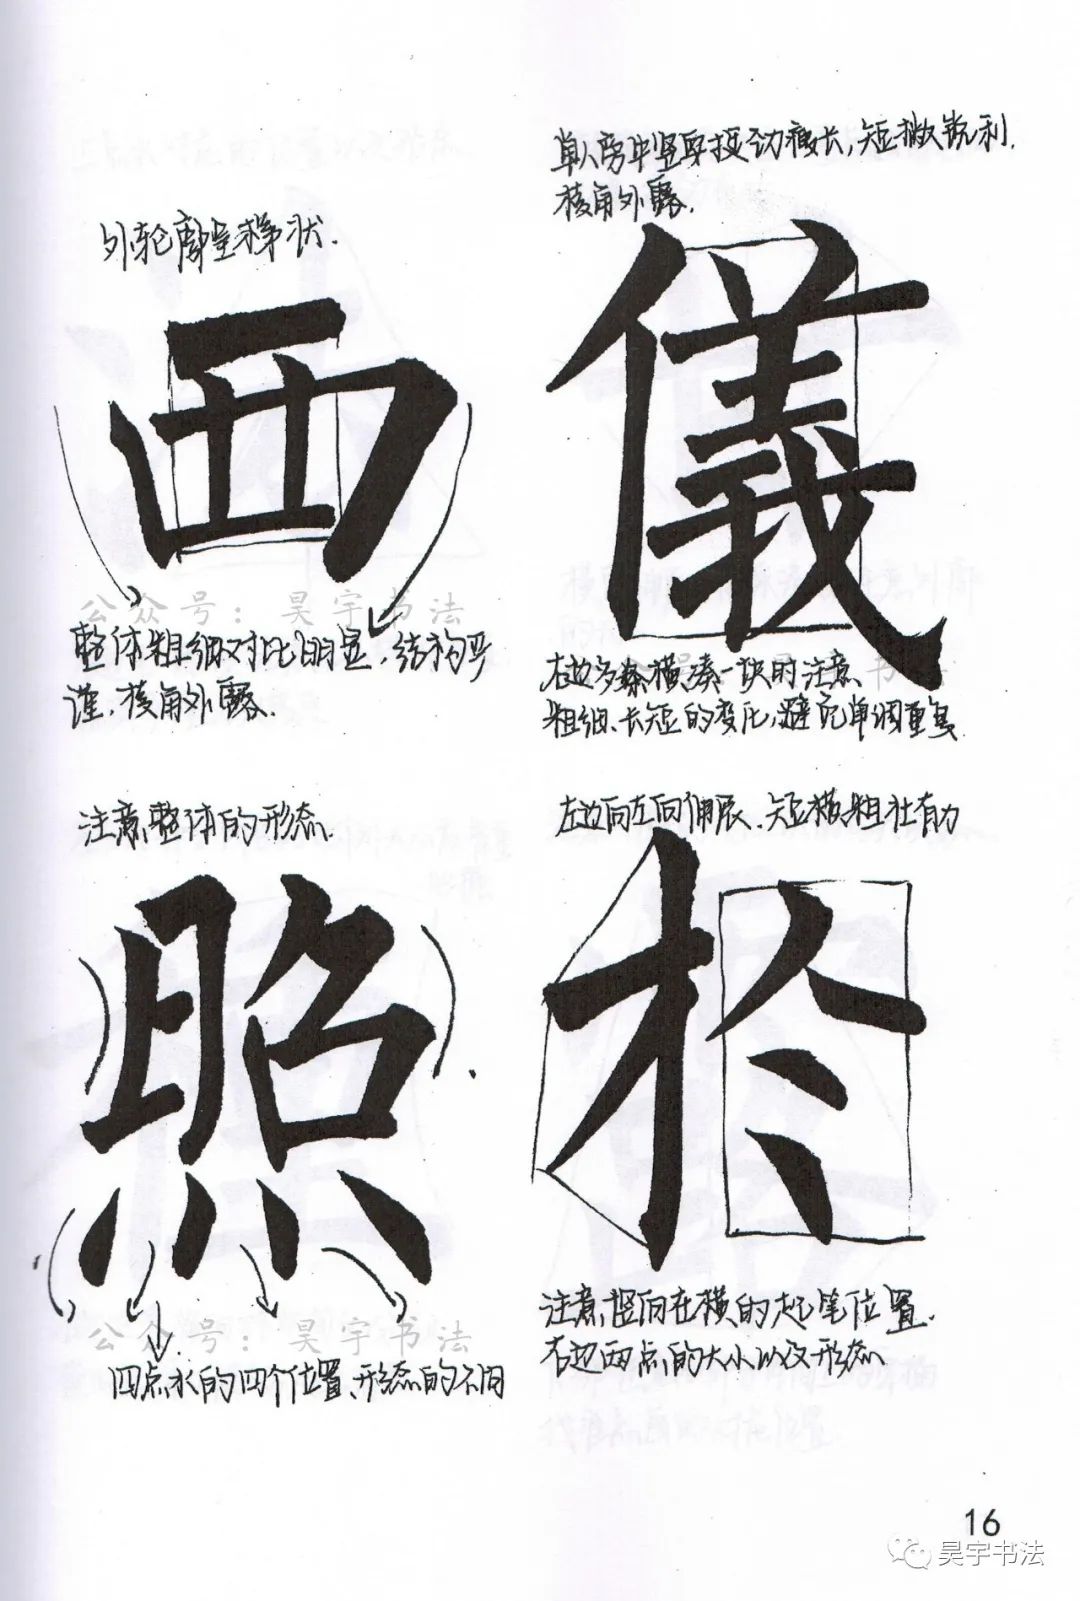 外轮廓呈梯状.
西
公众号：昊宇书法
整体粗细对比明显,结构严
谨,棱角外露.
单人旁中竖要挺劲瘦长,短撇锐利.
棱角外露.
儀
右边多条横凑一块时注意
粗细、长短的变化,避免单调重复
注意整体的形态.
照
公众号：昊宇书法
四点水的四个位置、形态的不同
左边向左向伸展.短横粗壮有力
於
注意竖向在横的起笔位置.
右边两点的大小以及形态
16
昊宇书法